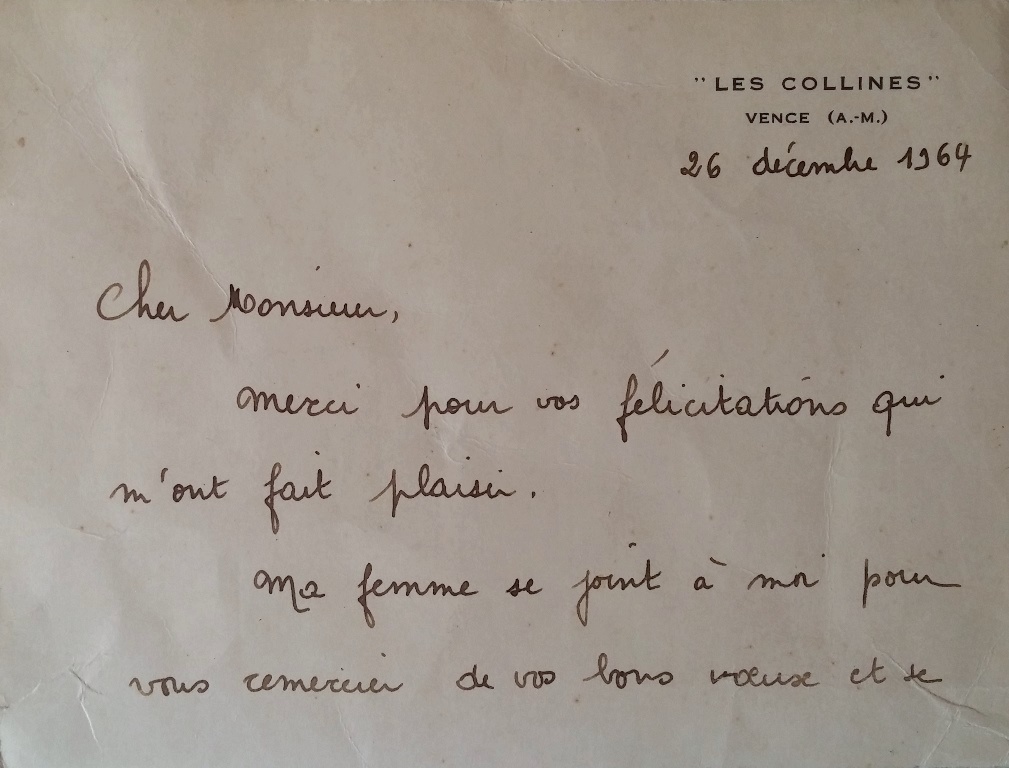 "LES COLLINES"
VENCE (A.-M.)
26 décembre 1964
Cher Monsieur,
Merci pour vos félicitations qui
m'ont fait plaisir.
Ma femme se joint à moi pour
vous remercier de vos bons voeux et se